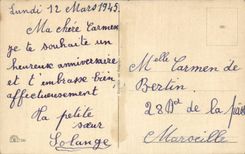 Lundi 12 Mars 1945.
Ma chère Carmen
je te souhaite un
heureux anniversaire
et t'embrasse bien
affectueusement
Ta petite
sœur
Solange
Melle Carmen de
Bertin.
28 Bd de la
Marseille